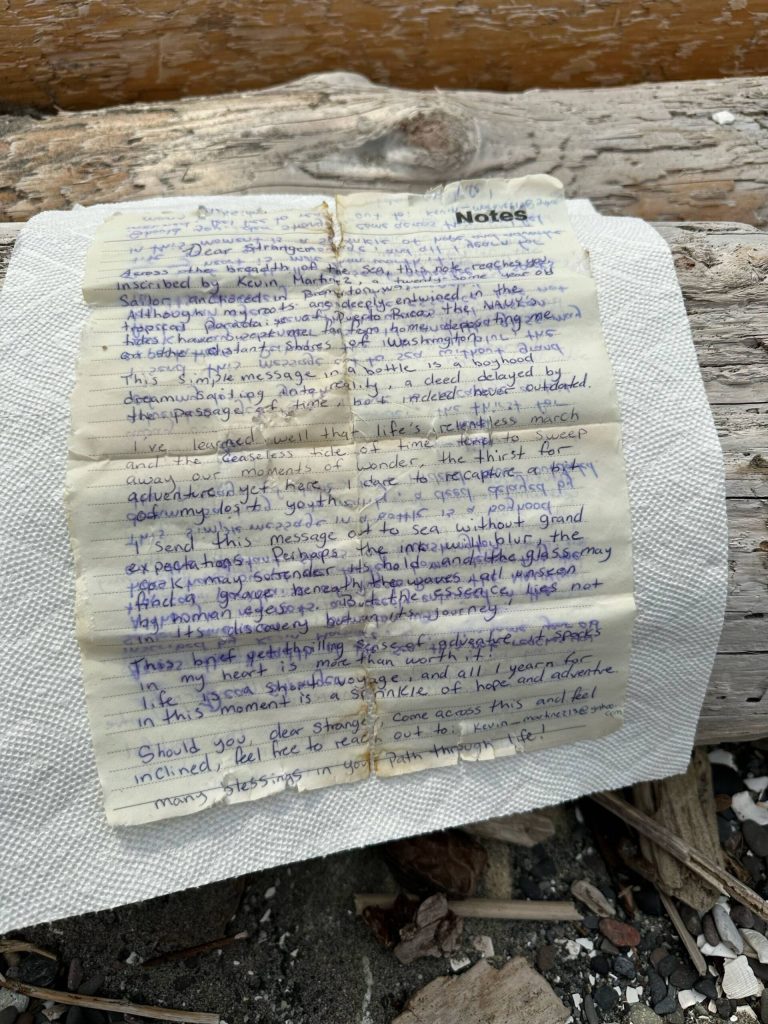 Notes
Dear Stranger
Across the breadth of the sea, this note reaches you,
inscribed by Kevin Martinez, a twenty-some year old
Sailor, anchored in Bremerton, WA
Although my roots are deeply entwined in the
tropical of Puerto Rico, the NAVY's
tides have swept me far from home, depositing me
on the distant Shores of Washington
This simple message in a bottle is a boyhood
dream into reality, a deed delayed by
the passage of time, but indeed never outdated.
I've learned well that life's relentless march
and the ceaseless tide of time tend to sweep
away our moments of wonder, the thirst for
adventure, yet here, I dare to recapture a bit
of my lost youth
I send this message out to sea without grand
expectations. Perhaps the ink will blur, the
cork may its hold and the glass may
find a grave beneath the waves, all unseen
by human eyes. But the essence, lies not
in its discovery but in its journey,
This brief yet thrilling sense of adventure it sparks
in my heart is more than worth it!
life is a short voyage, and all I yearn for
in this moment is a sprinkle of hope and adventure.
Should you, dear Stranger, come across this and feel
inclined, feel free to reach out to: com
many blessings in your path through life!